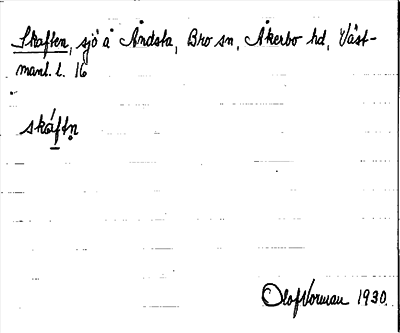 Skaften, sjö å Åndsta, Bro sn, Åkerbo hd, Väst-
manl. l. 16
skáftn̥
Olof Norman 1930.